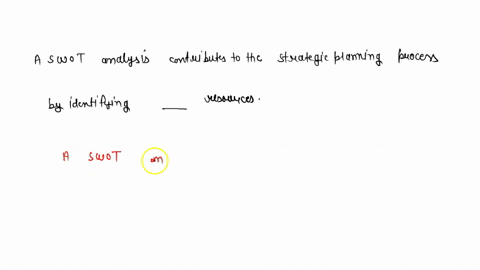 A SWOT analysis contributes to the strategic planning process
by identifying ___ resources.
A SWOT an